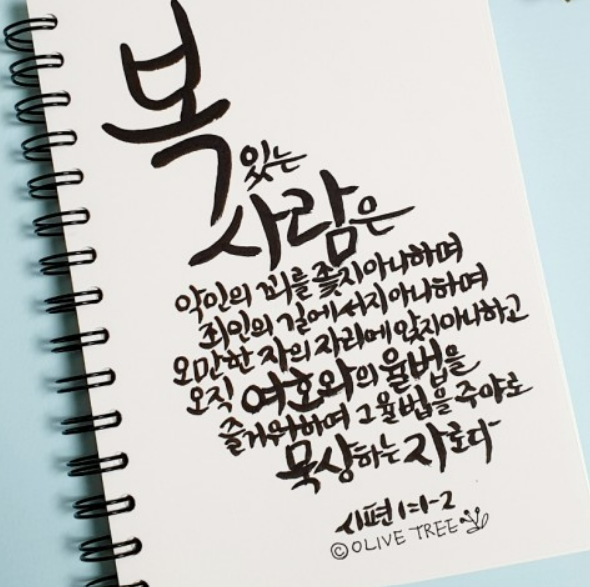 복
있는
사람은
악인의 꾀를 좇지아니하며
죄인의 길에 서지아니하며
오만한 자의 자리에 앉지아니하고
오직 여호와의 율법을
즐거워하며 그 율법을 주야로
묵상하는 자로다
시편 1:1-2
©OLIVE TREE